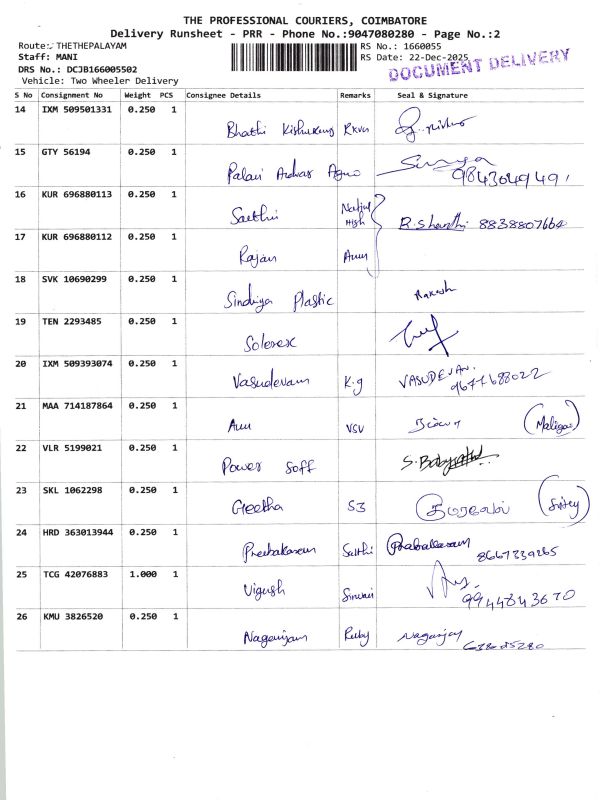 THE PROFESSIONAL COURIERS, COIMBATORE
Delivery Runsheet - PRR - Phone No.:9047080280 - Page No.:2
Route: THETHEPALAYAM RS No.: 1660055
Staff: MANI RS Date: 22-Dec-2025
DOCUMENT DELIVERY
DRS No.: DCJB166005502
Vehicle: Two Wheeler Delivery
S No Consignment No Weight PCS Consignee Details Remarks Seal & Signature
14 IXM 509501331 0.250 1
Bhathi
15 GTY 56194 0.250 1
Palani Agro Surya
9843049491
16 KUR 696880113 0.250 1
Sakthi High R. Sharathi 8838807664
17 KUR 696880112 0.250 1
Rajan
18 SVK 10690299 0.250 1
Sindhiya Plastic Rakesh
19 TEN 2293485 0.250 1
Solerex
20 IXM 509393074 0.250 1
Vasudevam K.g VASUDEVAN.
9677688022
21 MAA 714187864 0.250 1
VSV (Maligai)
22 VLR 5199021 0.250 1
Power Soff S.
23 SKL 1062298 0.250 1
Geetha S3
24 HRD 363013944 0.250 1
Sakthi Prabakaran
8667339265
25 TCG 42076883 1.000 1
Vignesh
9944843670
26 KMU 3826520 0.250 1
Nagarajan Ruby Nagaraj